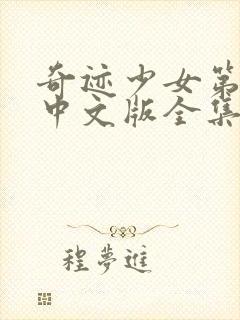 奇迹少女第
中文版全集
程夢進